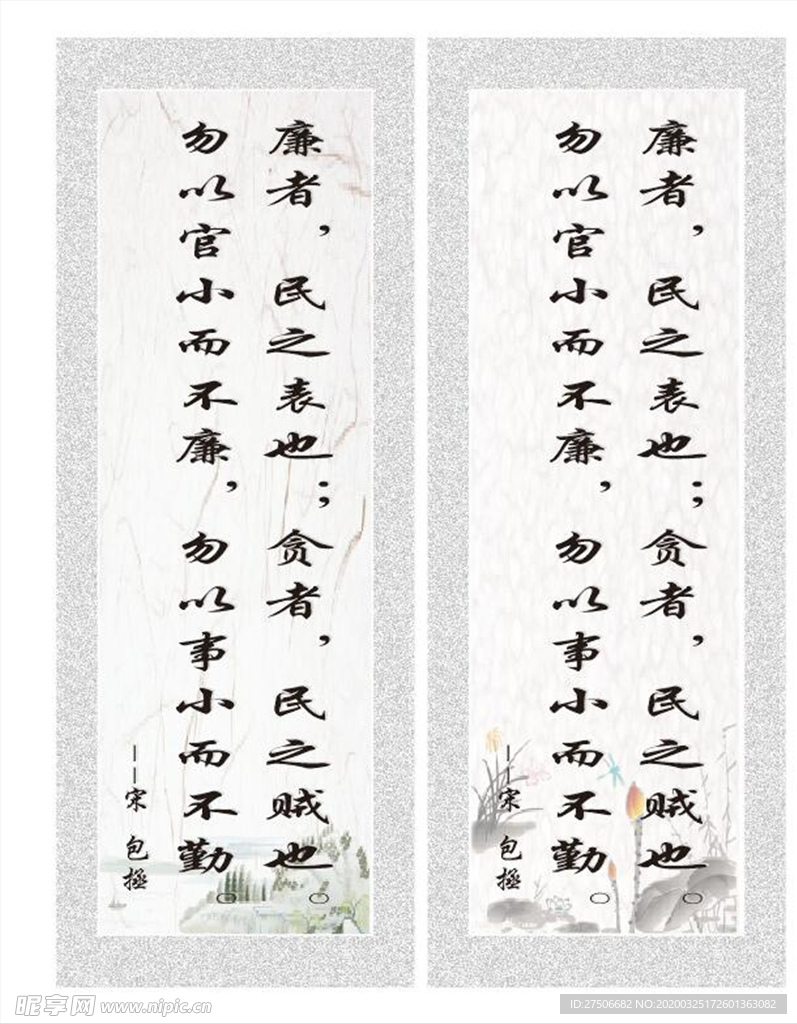 廉者，民之表也；贪者，民之贼也。
勿以官小而不廉，勿以事小而不勤。
——宋 包拯
廉者，民之表也；贪者，民之贼也。
勿以官小而不廉，勿以事小而不勤。
——宋 包拯
昵享网 www.nipic.cn
ID:27506682 NO:20200325172601363082